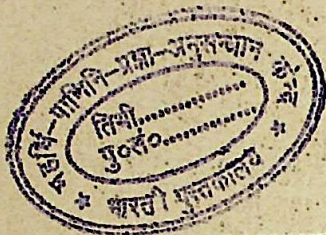 महर्षि-पाणिनि-प्रज्ञा-अनुसंधान केन्द्र
तिथी...............
पु०सं०...............
* भारती पुस्तकालय *